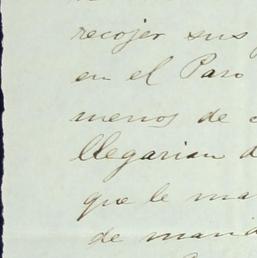 recojer sus
en el Paso
menos de
llegarian
que le ma
de mand